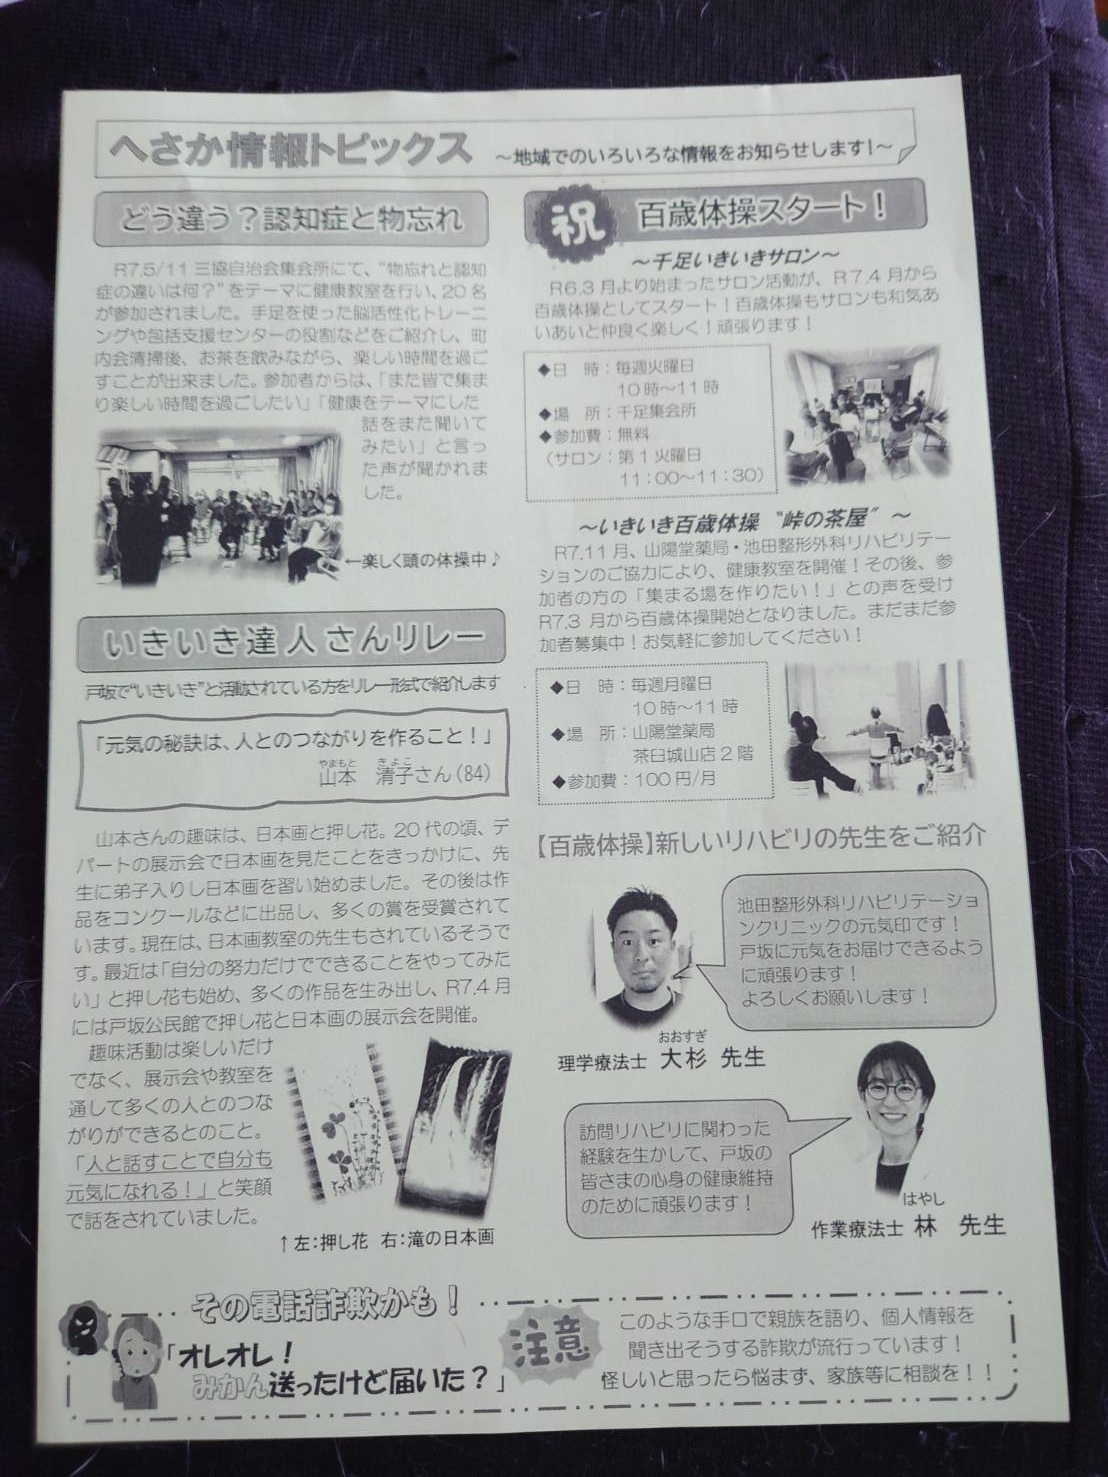 へさか情報トピックス
～地域でのいろいろな情報をお知らせします！～
どう違う？認知症と物忘れ
R7.5/11 三協自治会集会所にて、“物忘れと認知
症の違いは何？”をテーマに健康教室を行い、20名
が参加されました。手足を使った脳活性化トレーニ
ングや包括支援センターの役割などをご紹介し、町
内会清掃後、お茶を飲みながら、楽しい時間を過ご
すことが出来ました。参加者からは、「また皆で集ま
り楽しい時間を過ごしたい」「健康をテーマにした
話をまた聞いて
みたい」と言っ
た声が聞かれま
した。
←楽しく頭の体操中♪
いきいき達人さんリレー
戸坂で“いきいき”と活動されている方をリレー形式で紹介します
「元気の秘訣は、人とのつながりを作ること！」
やまもと きよこ
山本 清子さん（84）
山本さんの趣味は、日本画と押し花。20代の頃、デ
パートの展示会で日本画を見たことをきっかけに、先
生に弟子入りし日本画を習い始めました。その後は作
品をコンクールなどに出品し、多くの賞を受賞されて
います。現在は、日本画教室の先生もされているそうで
す。最近は「自分の努力だけでできることをやってみた
い」と押し花も始め、多くの作品を生み出し、R7.4月
には戸坂公民館で押し花と日本画の展示会を開催。
趣味活動は楽しいだけ
でなく、展示会や教室を
通して多くの人とのつな
がりができるとのこと。
「人と話すことで自分も
元気になれる！」と笑顔
で話をされていました。
↑左：押し花 右：滝の日本画
祝
百歳体操スタート！
～千足いきいきサロン～
R6.3月より始まったサロン活動が、R7.4月から
百歳体操としてスタート！百歳体操もサロンも和気あ
いあいと仲良く楽しく！頑張ります！
◆日 時：毎週火曜日
10時～11時
◆場 所：千足集会所
◆参加費：無料
（サロン：第1火曜日
11：00～11：30）
～いきいき百歳体操 “峠の茶屋” ～
R7.11月、山陽堂薬局・池田整形外科リハビリテー
ションのご協力により、健康教室を開催！その後、参
加者の方の「集まる場を作りたい！」との声を受け
R7.3月から百歳体操開始となりました。まだまだ参
加者募集中！お気軽に参加してください！
◆日 時：毎週月曜日
10時～11時
◆場 所：山陽堂薬局
茶臼城山店2階
◆参加費：100円/月
【百歳体操】新しいリハビリの先生をご紹介
池田整形外科リハビリテーショ
ンクリニックの元気印です！
戸坂に元気をお届けできるよう
に頑張ります！
よろしくお願いします！
おおすぎ
理学療法士 大杉 先生
訪問リハビリに関わった
経験を生かして、戸坂の
皆さまの心身の健康維持
のために頑張ります！
はやし
作業療法士 林 先生
その電話詐欺かも！
「オレオレ！
みかん送ったけど届いた？」
注意
このような手口で親族を語り、個人情報を
聞き出そうする詐欺が流行っています！
怪しいと思ったら悩まず、家族等に相談を！！